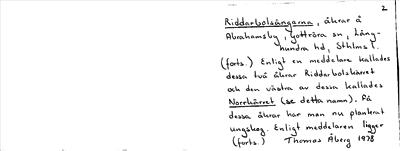 2
Riddarbolsängarna, åkrar å
Abrahamsby, Gottröra sn, Lång-
hundra hd, Sthlms l.
(forts.) Enligt en meddelare kallades
dessa två åkrar Riddarbolskärret
och den västra av dessa kallades
Norrkärret (se detta namn). På
dessa åkrar har man nu planterat
ungskog. Enligt meddelaren ligger
(forts.) Thomas Åberg 1978